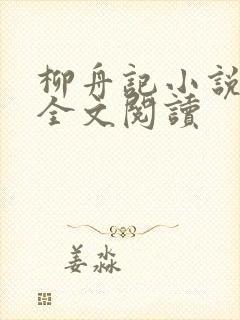 柳舟記小說
全文閱讀
姜淼